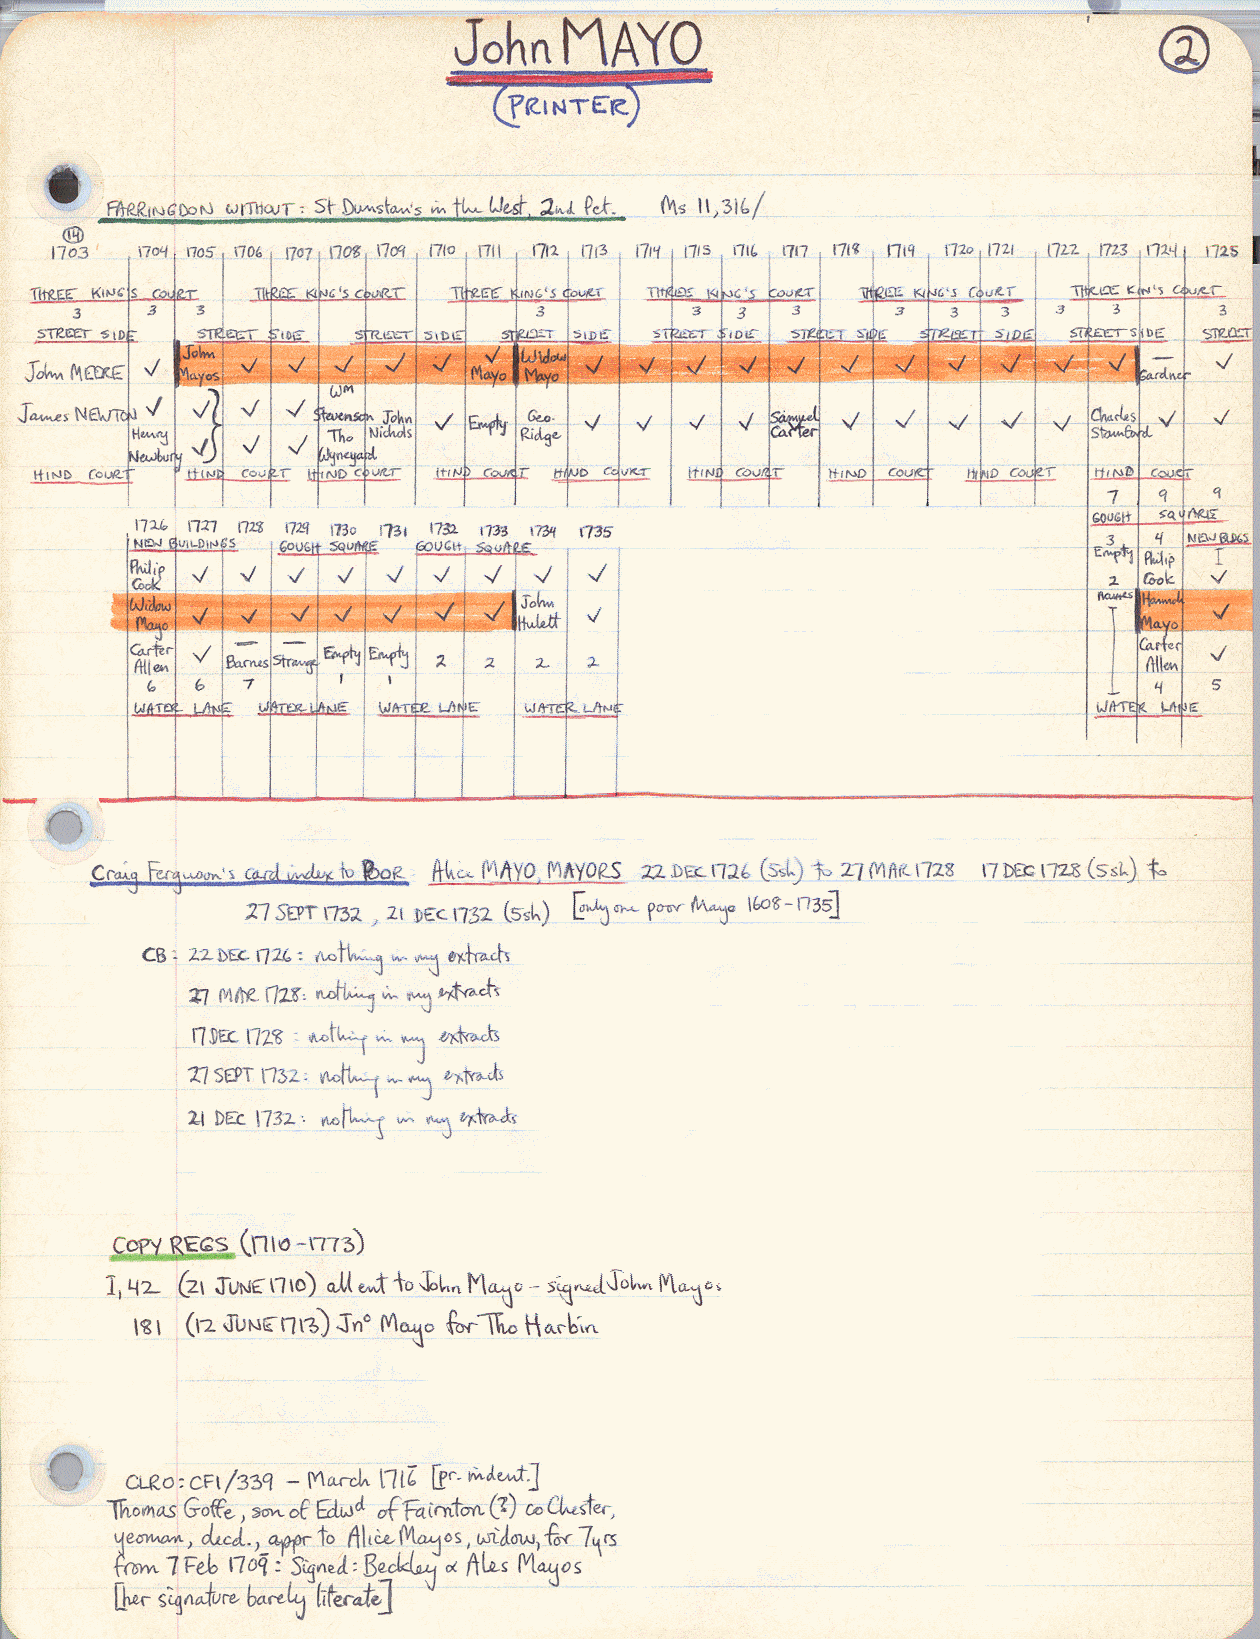 John MAYO
2
(PRINTER)
FARRINGDON WITHOUT: St Dunstan's in the West, 2nd Pct. Ms 11,316/
14
1703 1704 1705 1706 1707 1708 1709 1710 1711 1712 1713 1714 1715 1716 1717 1718 1719 1720 1721 1722 1723 1724 1725
THREE KING'S COURT THREE KING'S COURT THREE KING'S COURT THREE KING'S COURT THREE KING'S COURT THREE KIN'S COURT
3 3 3 3 3 3 3 3 3 3 3 3 3
STREET SIDE STREET SIDE STREET SIDE STREET SIDE STREET SIDE STREET SIDE STREET SIDE STREET SIDE STREET
John MEERE ✓ John Mayos ✓ ✓ ✓ ✓ ✓ ✓ Mayo Widow Mayo ✓ ✓ ✓ ✓ ✓ ✓ ✓ ✓ ✓ ✓ ✓ — Gardner ✓
James NEWTON ✓ ✓ ✓ ✓ Wm Stevenson John Nichols ✓ Empty Geo. Ridge ✓ ✓ ✓ ✓ Samuel Carter ✓ ✓ ✓ ✓ ✓ Charles Stamford ✓ ✓
Henry Newbury ✓ ✓ ✓ Tho Wyneyard
HIND COURT HIND COURT HIND COURT HIND COURT HIND COURT HIND COURT HIND COURT HIND COURT HIND COURT
7 9 9
GOUGH SQUARE
3 4 NEW BLDGS
Empty Philip Cook I ✓
2 Houses Hannah Mayo ✓
Carter Allen ✓
4 5
WATER LANE
1726 1727 1728 1729 1730 1731 1732 1733 1734 1735
NEW BUILDINGS GOUGH SQUARE GOUGH SQUARE
Philip Cook ✓ ✓ ✓ ✓ ✓ ✓ ✓ ✓ ✓
Widow Mayo ✓ ✓ ✓ ✓ ✓ ✓ ✓ John Hulett ✓
Carter Allen ✓ — Barnes — Strange Empty Empty 2 2 2 2
6 6 7 1 1
WATER LANE WATER LANE WATER LANE WATER LANE
Craig Ferguson's card index to POOR Alice MAYO, MAYORS 22 DEC 1726 (5sh) to 27 MAR 1728 17 DEC 1728 (5sh) to
27 SEPT 1732, 21 DEC 1732 (5sh) [only one poor Mayo 1608-1735]
CB: 22 DEC 1726: nothing in my extracts
27 MAR 1728: nothing in my extracts
17 DEC 1728: nothing in my extracts
27 SEPT 1732: nothing in my extracts
21 DEC 1732: nothing in my extracts
COPY REGS (1710-1773)
I, 42 (21 JUNE 1710) all ent to John Mayo - signed John Mayos
181 (12 JUNE 1713) Jno Mayo for Tho Harbin
CLRO: CF1/339 - March 1716 [pr. indent.]
Thomas Goffe, son of Edwd of Fairnton (?) co Chester,
yeoman, decd., appr to Alice Mayos, widow, for 7yrs
from 7 Feb 1709: Signed: Beckley & Ales Mayos
[her signature barely literate]